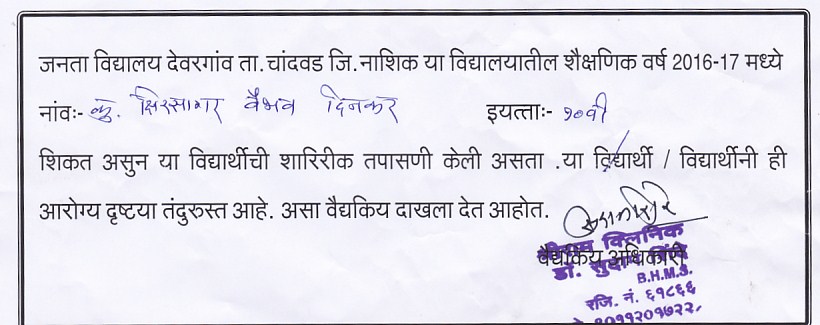 जनता विद्यालय देवरगांव ता.चांदवड जि.नाशिक या विद्यालयातील शैक्षणिक वर्ष 2016-17 मध्ये
नांवः- कु. क्षिरसागर वैभव दिनकर इयत्ताः- १०वी
शिकत असुन या विद्यार्थीची शारिरीक तपासणी केली असता .या विद्यार्थी / विद्यार्थीनी ही
आरोग्य दृष्टया तंदुरुस्त आहे. असा वैद्यकिय दाखला देत आहोत.
क्लिनिक
वैद्यकिय अधिकारी
डॉ.
B.H.M.S.
रजि. नं. ६१८६६